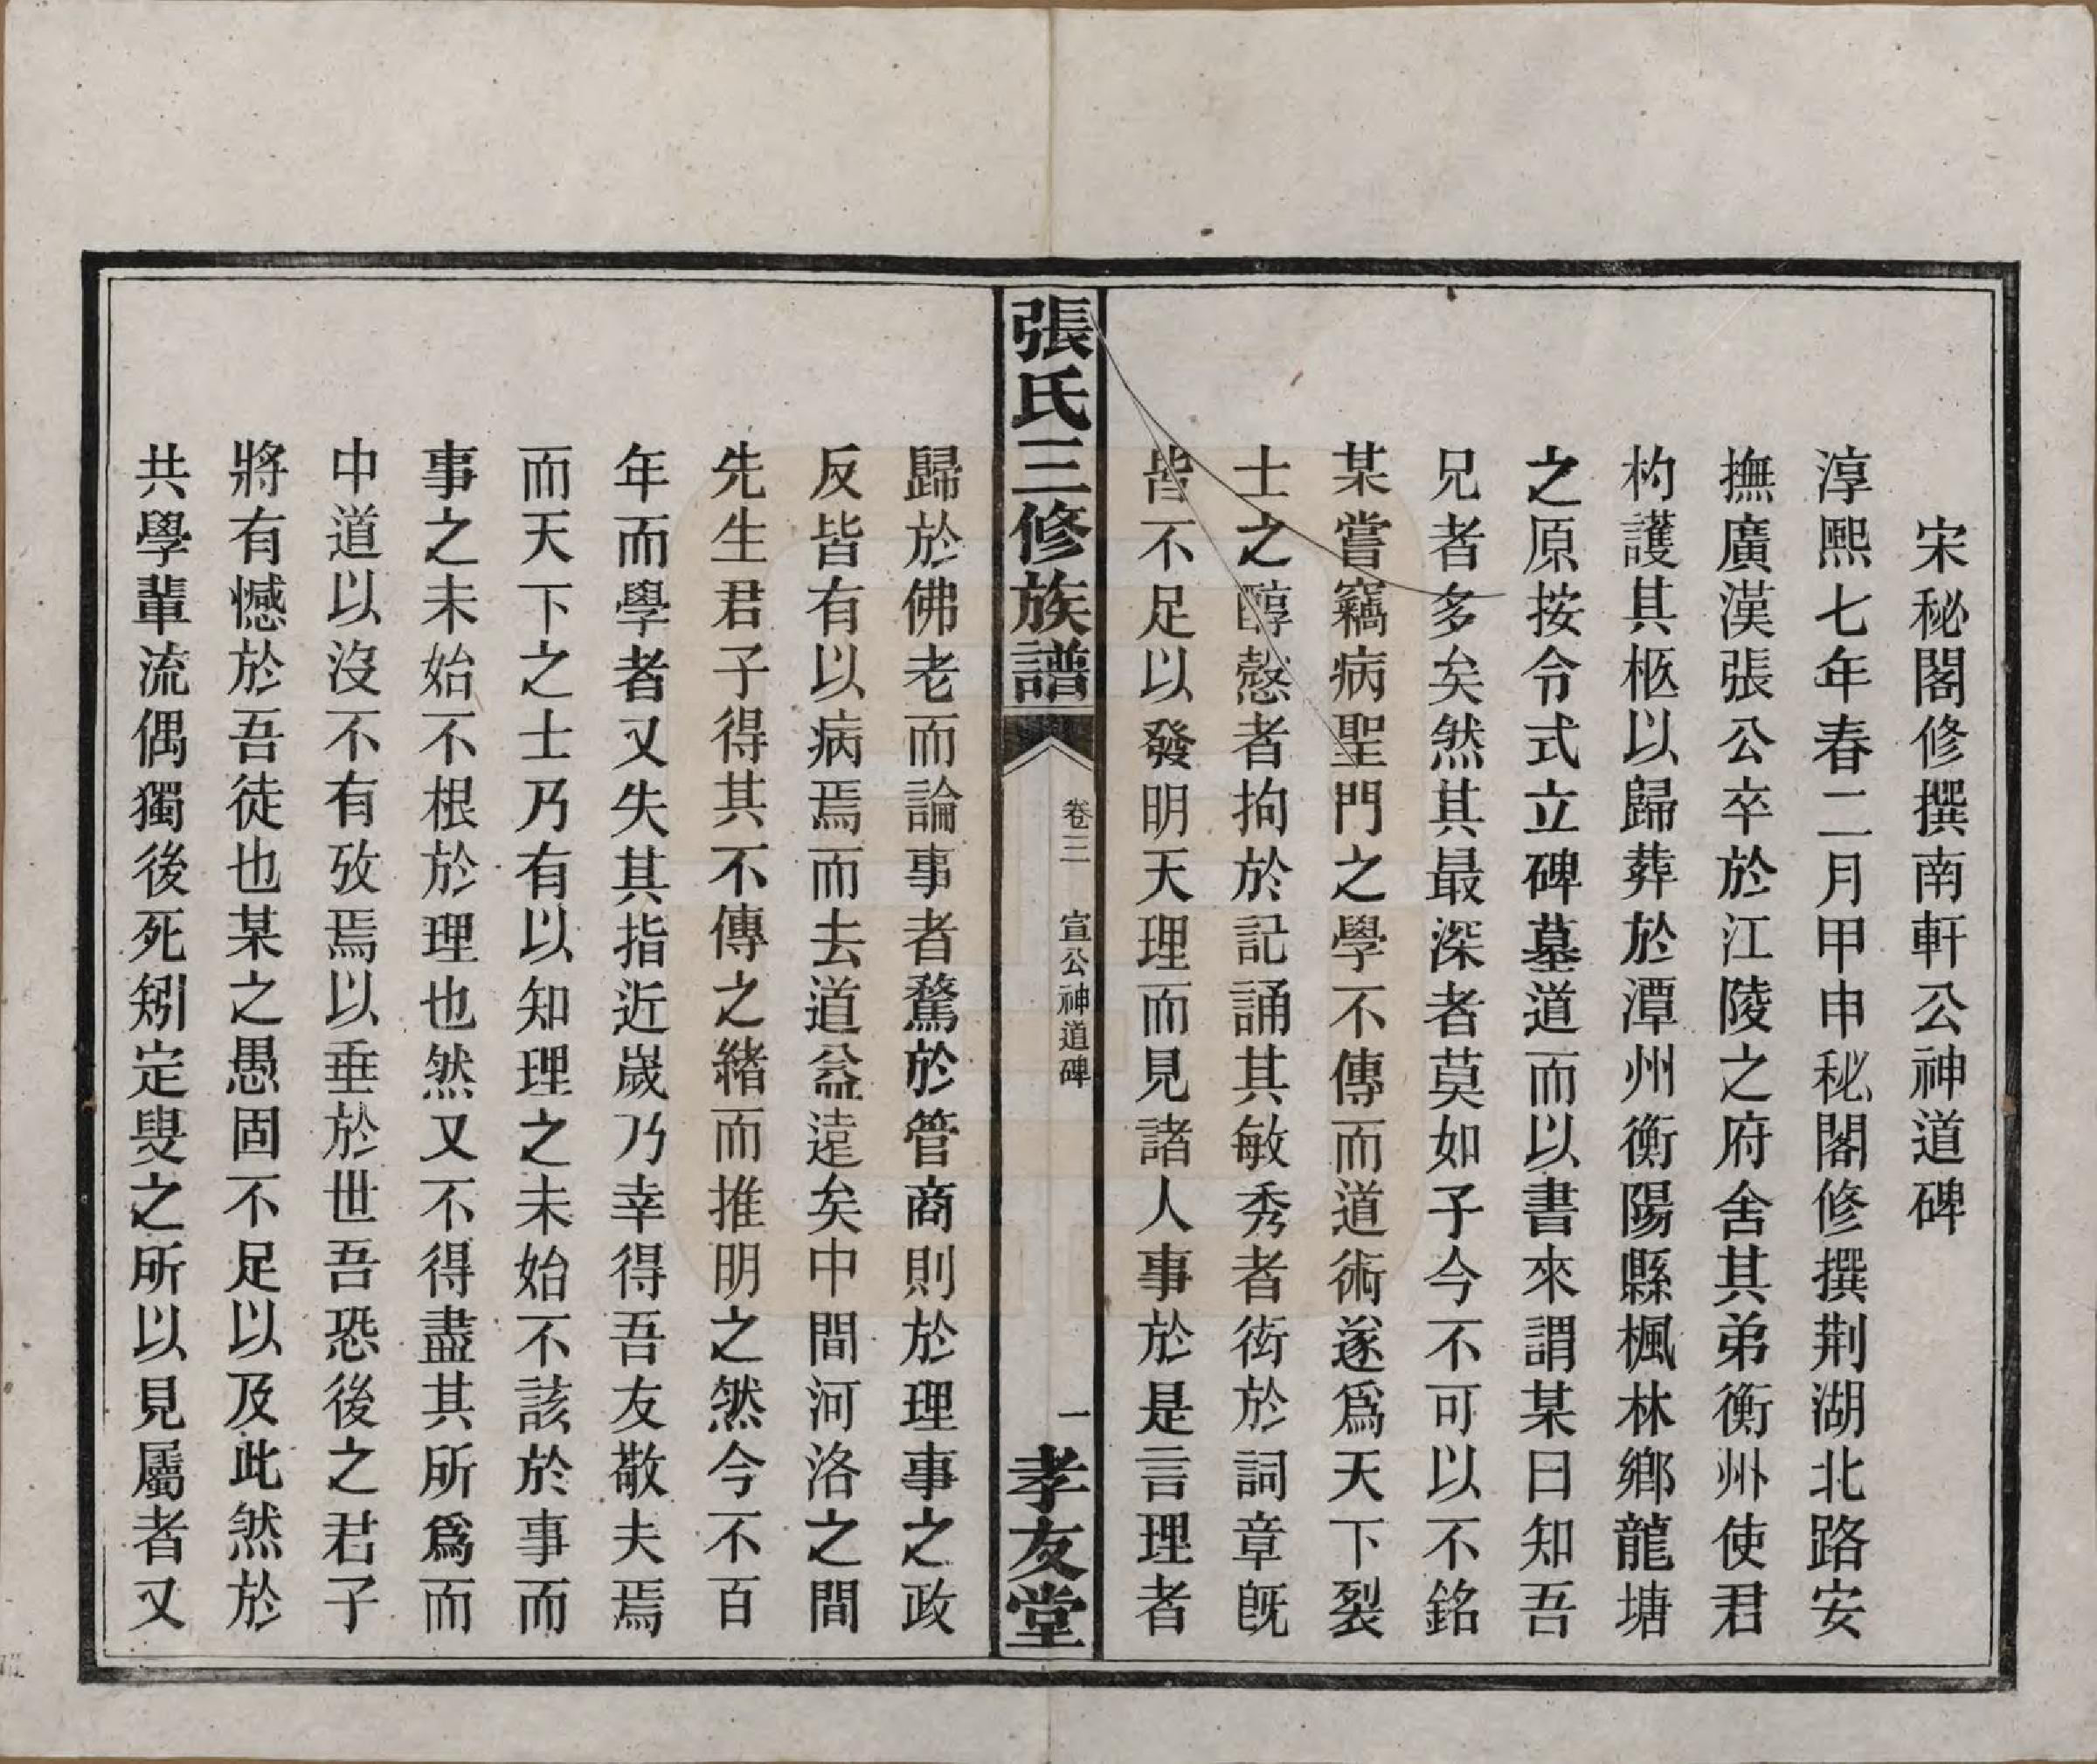 宋秘閣修撰南軒公神道碑
淳熙七年春二月甲申秘閣修撰荆湖北路安
撫廣漢張公卒於江陵之府舍其弟衡州使君
杓護其柩以歸葬於潭州衡陽縣楓林鄉龍塘
之原按令式立碑墓道而以書來謂某曰知吾
兄者多矣然其最深者莫如子今不可以不銘
某嘗竊病聖門之學不傳而道術遂爲天下裂
士之醇慤者拘於記誦其敏秀者衒於詞章旣
皆不足以發明天理而見諸人事於是言理者
張氏三修族譜
卷三
宣公神道碑
一
孝友堂
歸於佛老而論事者騖於管商則於理事之政
反皆有以病焉而去道益遠矣中間河洛之間
先生君子得其不傳之緒而推明之然今不百
年而學者又失其指近嵗乃幸得吾友敬夫焉
而天下之士乃有以知理之未始不該於事而
事之未始不根於理也然又不得盡其所爲而
中道以沒不有攷焉以垂於世吾恐後之君子
將有憾於吾徒也某之愚固不足以及此然於
共學輩流偶獨後死矧定叟之所以見屬者又